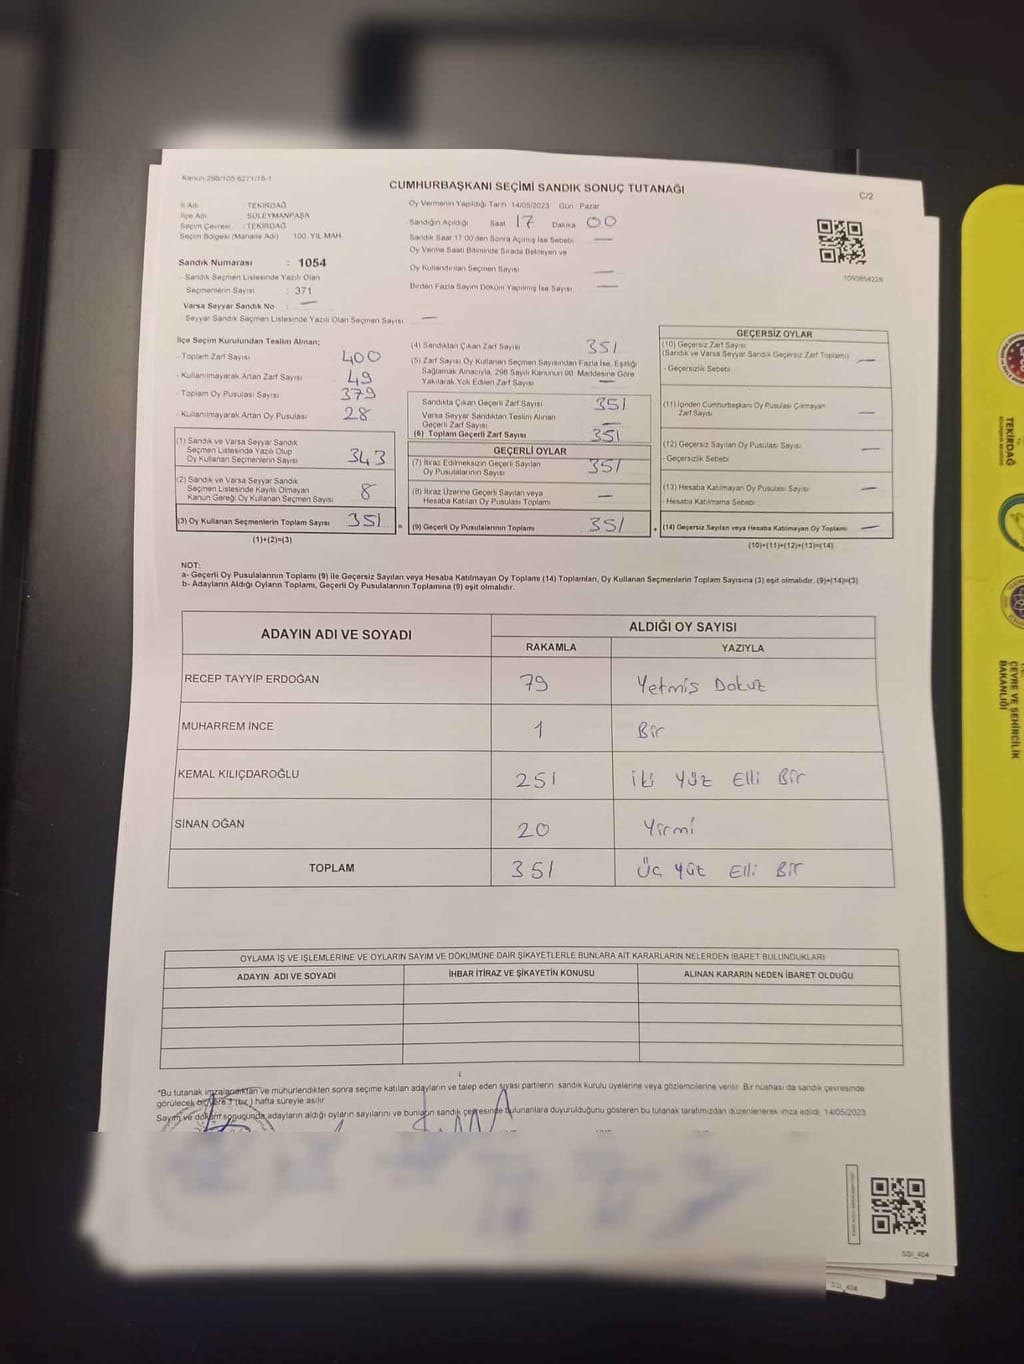 Kanun 298/105 6271/18-1
CUMHURBAŞKANI SEÇİMİ SANDIK SONUÇ TUTANAĞI
C/2
İl Adı : TEKİRDAĞ
İlçe Adı : SÜLEYMANPAŞA
Seçim Çevresi : TEKİRDAĞ
Seçim Bölgesi (Mahalle Adı) : 100. YIL MAH.
Sandık Numarası : 1054
- Sandık Seçmen Listesinde Yazılı Olan
Seçmenlerin Sayısı : 371
Varsa Seyyar Sandık No : —
- Seyyar Sandık Seçmen Listesinde Yazılı Olan Seçmen Sayısı : —
Oy Vermenin Yapıldığı Tarih 14/05/2023 Gün : Pazar
Sandığın Açıldığı Saat 17 Dakika 00
Sandık Saat 17.00'den Sonra Açılmış İse Sebebi —
Oy Verme Saati Bitiminde Sırada Bekleyen ve
Oy Kullandırılan Seçmen Sayısı —
Birden Fazla Sayım Döküm Yapılmış İse Sayısı —
1093654228
İlçe Seçim Kurulundan Teslim Alınan;
- Toplam Zarf Sayısı 400
- Kullanılmayarak Artan Zarf Sayısı 49
- Toplam Oy Pusulası Sayısı 379
- Kullanılmayarak Artan Oy Pusulası 28
(1) Sandık ve Varsa Seyyar Sandık
Seçmen Listesinde Yazılı Olup
Oy Kullanan Seçmenlerin Sayısı 343
(2) Sandık ve Varsa Seyyar Sandık
Seçmen Listesinde Kayıtlı Olmayan
Kanun Gereği Oy Kullanan Seçmen Sayısı 8
(3) Oy Kullanan Seçmenlerin Toplam Sayısı 351
(1)+(2)=(3)
(4) Sandıktan Çıkan Zarf Sayısı 351
(5) Zarf Sayısı Oy Kullanan Seçmen Sayısından Fazla İse, Eşitliği
Sağlamak Amacıyla, 298 Sayılı Kanunun 98. Maddesine Göre
Yakılarak Yok Edilen Zarf Sayısı —
Sandıkta Çıkan Geçerli Zarf Sayısı 351
Varsa Seyyar Sandıktan Teslim Alınan
Geçerli Zarf Sayısı —
(6) Toplam Geçerli Zarf Sayısı 351
GEÇERLİ OYLAR
(7) İtiraz Edilmeksizin Geçerli Sayılan
Oy Pusulalarının Sayısı 351
(8) İtiraz Üzerine Geçerli Sayılan veya
Hesaba Katılan Oy Pusulası Toplamı —
= (9) Geçerli Oy Pusulalarının Toplamı 351
GEÇERSİZ OYLAR
(10) Geçersiz Zarf Sayısı
(Sandık ve Varsa Seyyar Sandık Geçersiz Zarf Toplamı) —
- Geçersizlik Sebebi
(11) İçinden Cumhurbaşkanı Oy Pusulası Çıkmayan
Zarf Sayısı —
(12) Geçersiz Sayılan Oy Pusulası Sayısı —
- Geçersizlik Sebebi
(13) Hesaba Katılmayan Oy Pusulası Sayısı —
- Hesaba Katılmama Sebebi
+ (14) Geçersiz Sayılan veya Hesaba Katılmayan Oy Toplamı —
(10)+(11)+(12)+(13)=(14)
NOT:
a- Geçerli Oy Pusulalarının Toplamı (9) ile Geçersiz Sayılan veya Hesaba Katılmayan Oy Toplamı (14) Toplamları, Oy Kullanan Seçmenlerin Toplam Sayısına (3) eşit olmalıdır. (9)+(14)=(3)
b- Adayların Aldığı Oyların Toplamı, Geçerli Oy Pusulalarının Toplamına (9) eşit olmalıdır.
ADAYIN ADI VE SOYADI
ALDIĞI OY SAYISI
RAKAMLA YAZIYLA
RECEP TAYYİP ERDOĞAN 79 Yetmis Dokuz
MUHARREM İNCE 1 Bir
KEMAL KILIÇDAROĞLU 251 İki Yüz Elli Bir
SİNAN OĞAN 20 Yirmi
TOPLAM 351 Üç Yüz Elli Bir
OYLAMA İŞ VE İŞLEMLERİNE VE OYLARIN SAYIM VE DÖKÜMÜNE DAİR ŞİKAYETLERLE BUNLARA AİT KARARLARIN NELERDEN İBARET BULUNDUKLARI
ADAYIN ADI VE SOYADI İHBAR İTİRAZ VE ŞİKAYETİN KONUSU ALINAN KARARIN NEDEN İBARET OLDUĞU
*Bu tutanak imzalandıktan ve mühürlendikten sonra seçime katılan adayların ve talep eden siyasi partilerin sandık kurulu üyelerine veya gözlemcilerine verilir. Bir nüshası da sandık çevresinde
görülecek bir yere 1 (bir) hafta süreyle asılır.
Sayım ve döküm sonucunda adayların aldığı oyların sayılarını ve bunların sandık çevresinde bulunanlara duyurulduğunu gösteren bu tutanak tarafımızdan düzenlenerek imza edildi. 14/05/2023
SSI_404
SSI_404
TEKİRDAĞ
T.C.
ÇEVRE VE ŞEHİRCİLİK
BAKANLIĞI